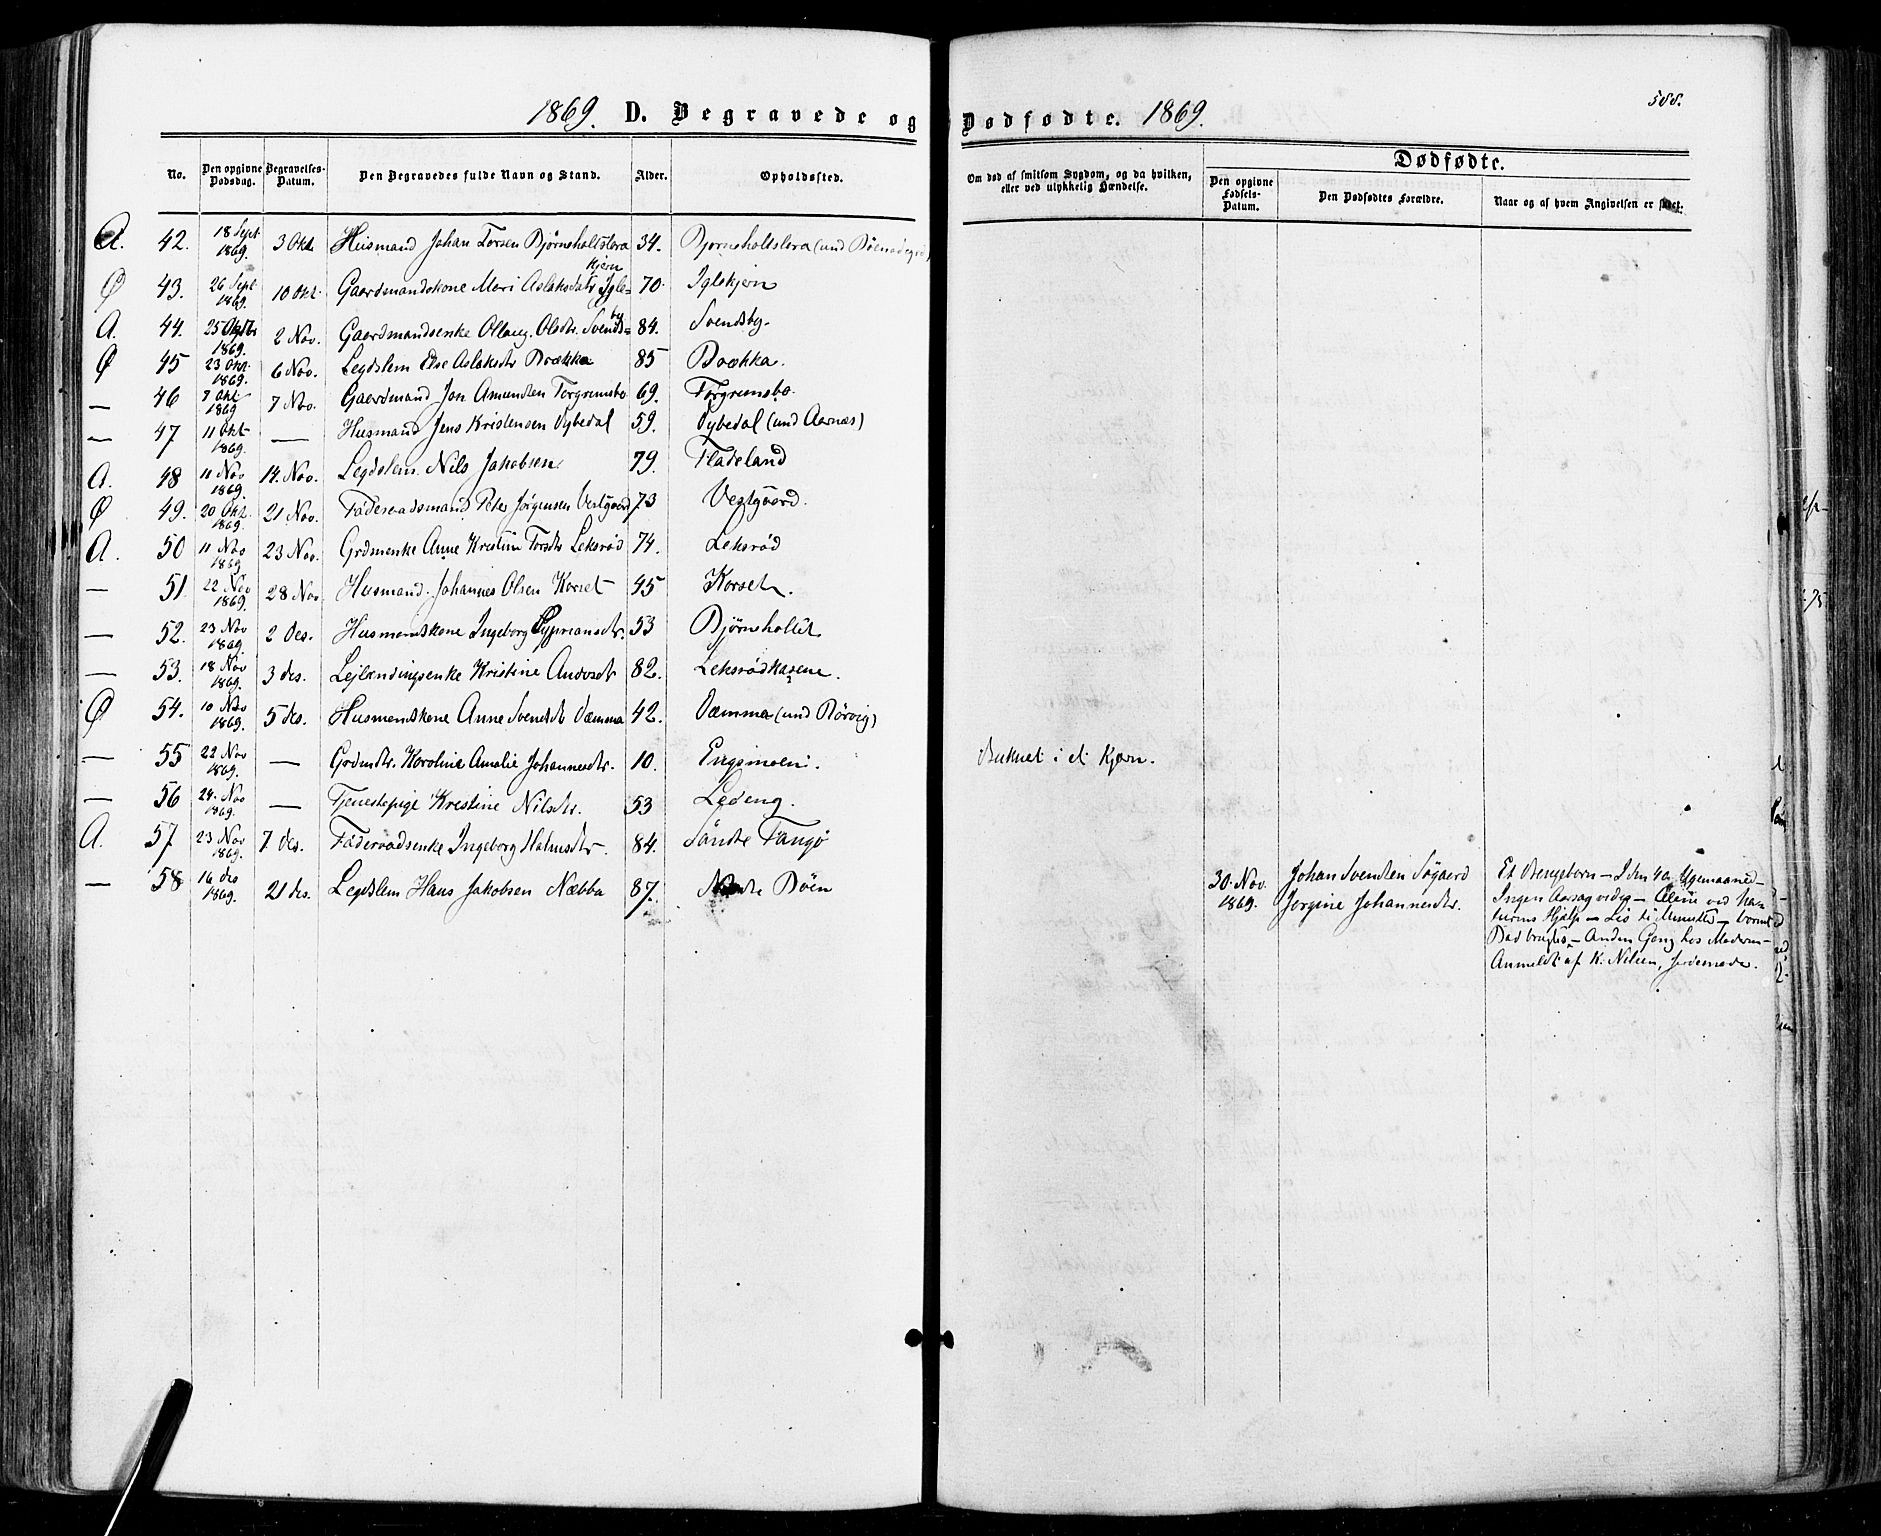 1869. D. Begravede og Dødfødte. 1869.
588.
No. Den opgivne Dødsdag. Begravelses-Datum. Den Begravedes fulde Navn og Stand. Alder. Opholdssted.
Om død af smitsom Sygdom, og da hvilken, eller ved ulykkelig Hændelse.
Dødfødte.
Den opgivne Fødsels-Datum. Den Dødfødtes Forældre. Naar og af hvem Angivelsen er skeet.
A. 42. 18 Sept 1869. 3 Okt Husmand Johan Torsen Bjørnholtslera 34. Bjørnholtslera (und
Ø 43. 26 Sept 1869. 10 Okt. Gaardmandskone Mari Aslaksdtr Iglekjern 70. Iglekjern
A. 44. 25 1869. 2 Nov. Gaardmandsenke Ollaug Olsdtr. Svendsby 84. Svendsby.
Ø 45 23 Okt. 1869. 6 Nov. Legdslem Else Aslaksdtr Brækka 85 Brækka.
— 46 7 Okt 1869 7 Nov. Gaardmand Jon Amundsen Torgrimsbo 69. Torgrimsbo.
— 47 11 Okt 1869. — Husmand Jens Kristensen Dybedal 59. Dybedal (und Aarnæs)
A. 48 11 Nov 1869. 14. Nov. Legdslem Nils Jakobsen 79. Fladeland
Ø 49. 20 Okt. 1869. 21 Nov. Føderaadsmand Peter Jørgensen Vestgaard 73 Vestgaard.
A. 50 11 Nov 1869 23 Nov. Grdmenke Anne Kristine Torsdtr Leksrød 74. Leksrød
— 51. 22 Nov 1869. 28 Nov Husmand Johannes Olsen Korset 45 Korset.
— 52. 23 Nov 1869. 2 des. Husmandskone Ingeborg Sypriansdtr. 53 Bjørnholtet
— 53. 18 Nov 1869. 3 des. Lejlændingsenke Kristine Andersdt 82. Leksrødkasene.
Ø 54. 10 Nov 1869. 5 des. Husmandskone Anne Svendsdt Dæmma 42. Dæmma (und Rørvig)
— 55 22 Nov 1869. — Grdmdtr. Karoline Amalie Johannesdtr. 10. Engsmoen. Druknet i et Kjærn.
— 56 24. Nov 1869. — Tjenestepige Kristine Nilsdtr. 53 Ledeng.
A. 57. 23 Nov 1869. 7. des. Føderaadsenke Ingeborg Halvorsdtr. 84. Søndre Tangø
— 58 16 des 1869. 21 des. Legdslem Hans Jakobsen Næbba 87. Nordre Bøen
30. Nov. 1869. Johan Svendsen Søgaard
Jorgine Johannesdtr.
Et Drengebarn — I den 40 Ugemaaned —
Ingen Aarsag vides — Alene ved Na-
turens Hjælp — Liv ti Minutter — varmt
Bad brugtes — Anden Gang hos Moderen —
Anmeldt af K. Nilsen, Jordemoder.